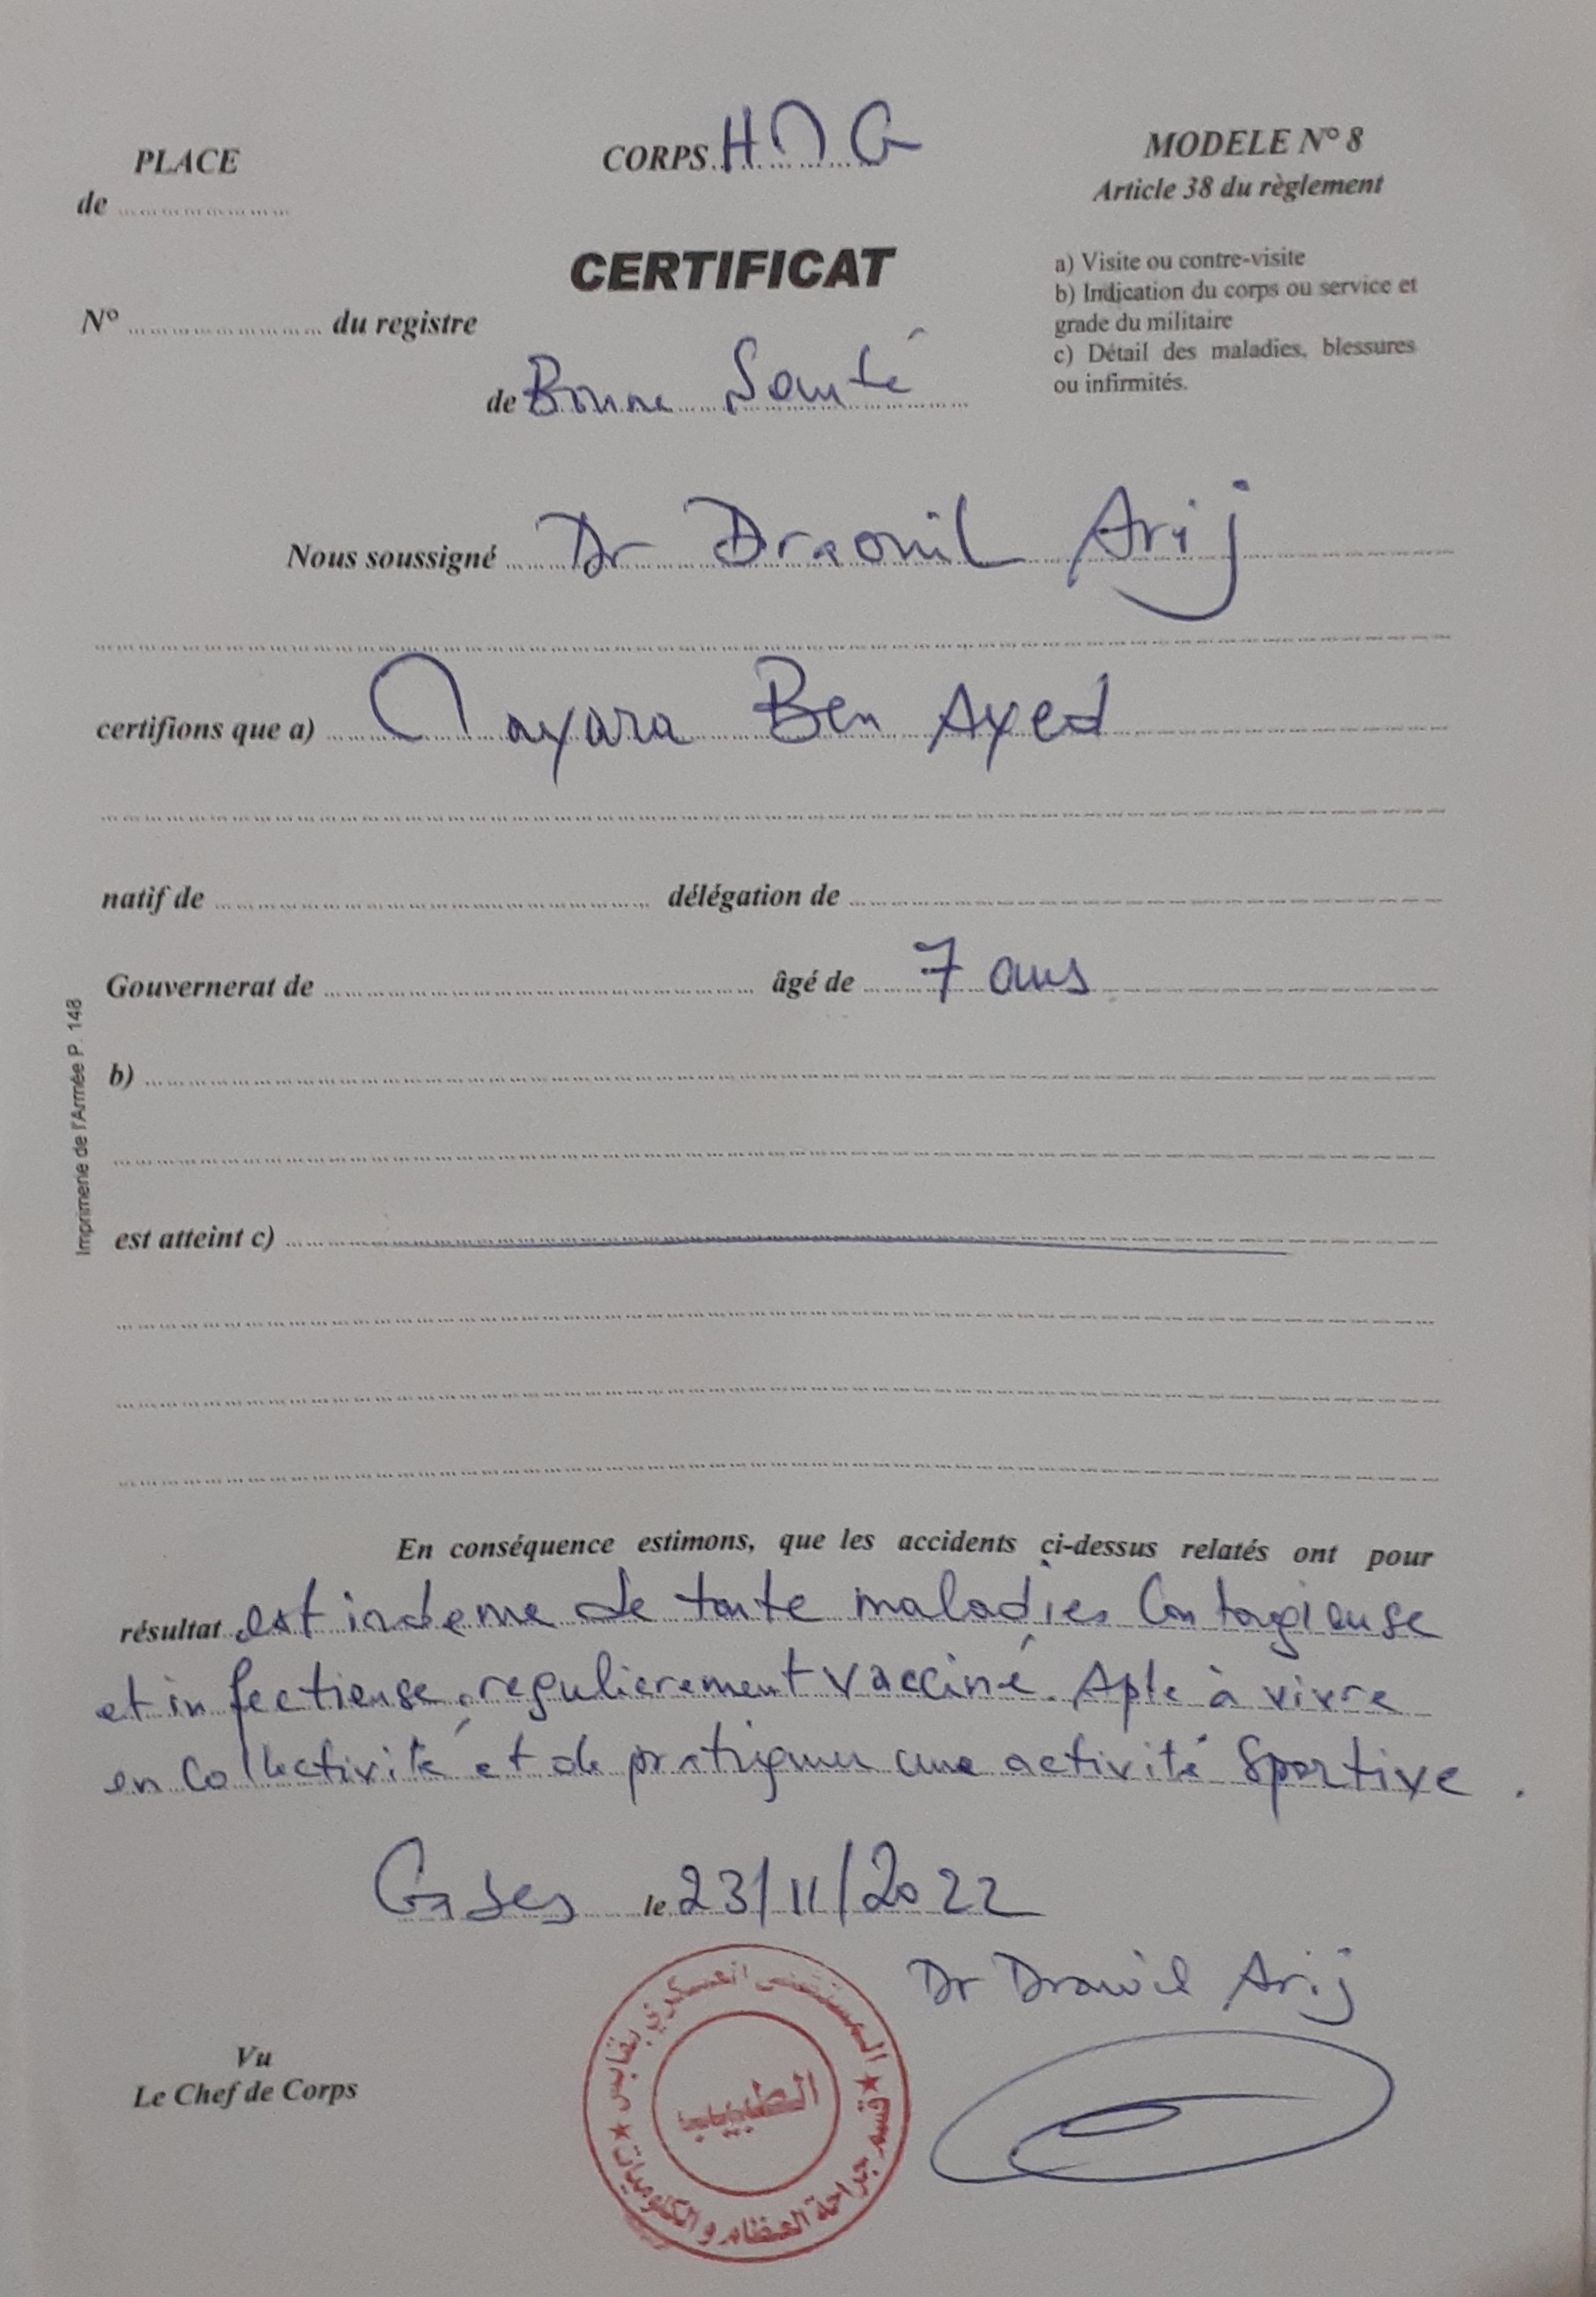 PLACE
de
CORPS HMG
MODELE N° 8
Article 38 du règlement
CERTIFICAT
a) Visite ou contre-visite
b) Indication du corps ou service et
grade du militaire
c) Détail des maladies, blessures
ou infirmités.
N° du registre
de Bonne Santé
Nous soussigné Dr Draouil Arij
certifions que a) Mayara Ben Ayed
natif de délégation de
Gouvernerat de âgé de 7 ans
b)
Imprimerie de l'Armée P. 148
est atteint c)
En conséquence estimons, que les accidents ci-dessus relatés ont pour
résultat est indeme de toute maladies Contagieuse
et infectieuse, regulierement vacciné. Apte à vivre
en Collectivité et de pratiquer une activité Sportive.
Gabes le 23/11/2022
Dr Drawil Arij
Vu
Le Chef de Corps
المستشفى العسكري بقابس
الطبيب
قسم جراحة العظام و الكلوميات